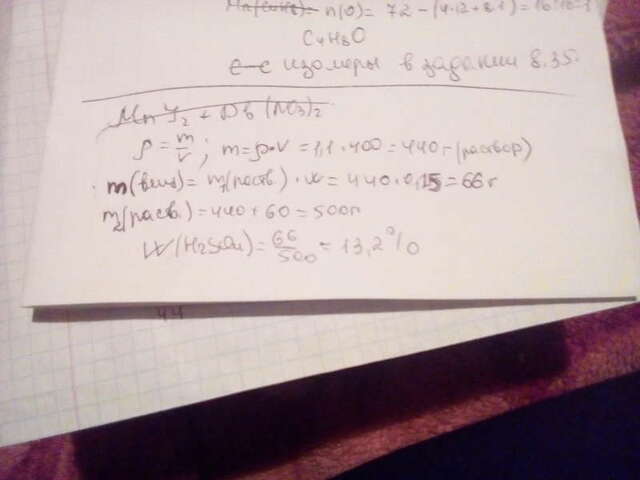 n(O) = 72 - (4·12+8·1) = 16:16=1
C4H8O
изомеры в задании 8.35.
MnI2 + Pb(NO3)2
ρ = m/V; m=ρ·V = 1,1·400 = 440 г (раствор)
m(вещ) = m1(раств.)·W = 440·0,15 = 66 г
m2(раств.) = 440 + 60 = 500г
W(H2SO4) = 66/500 = 13,2%
44